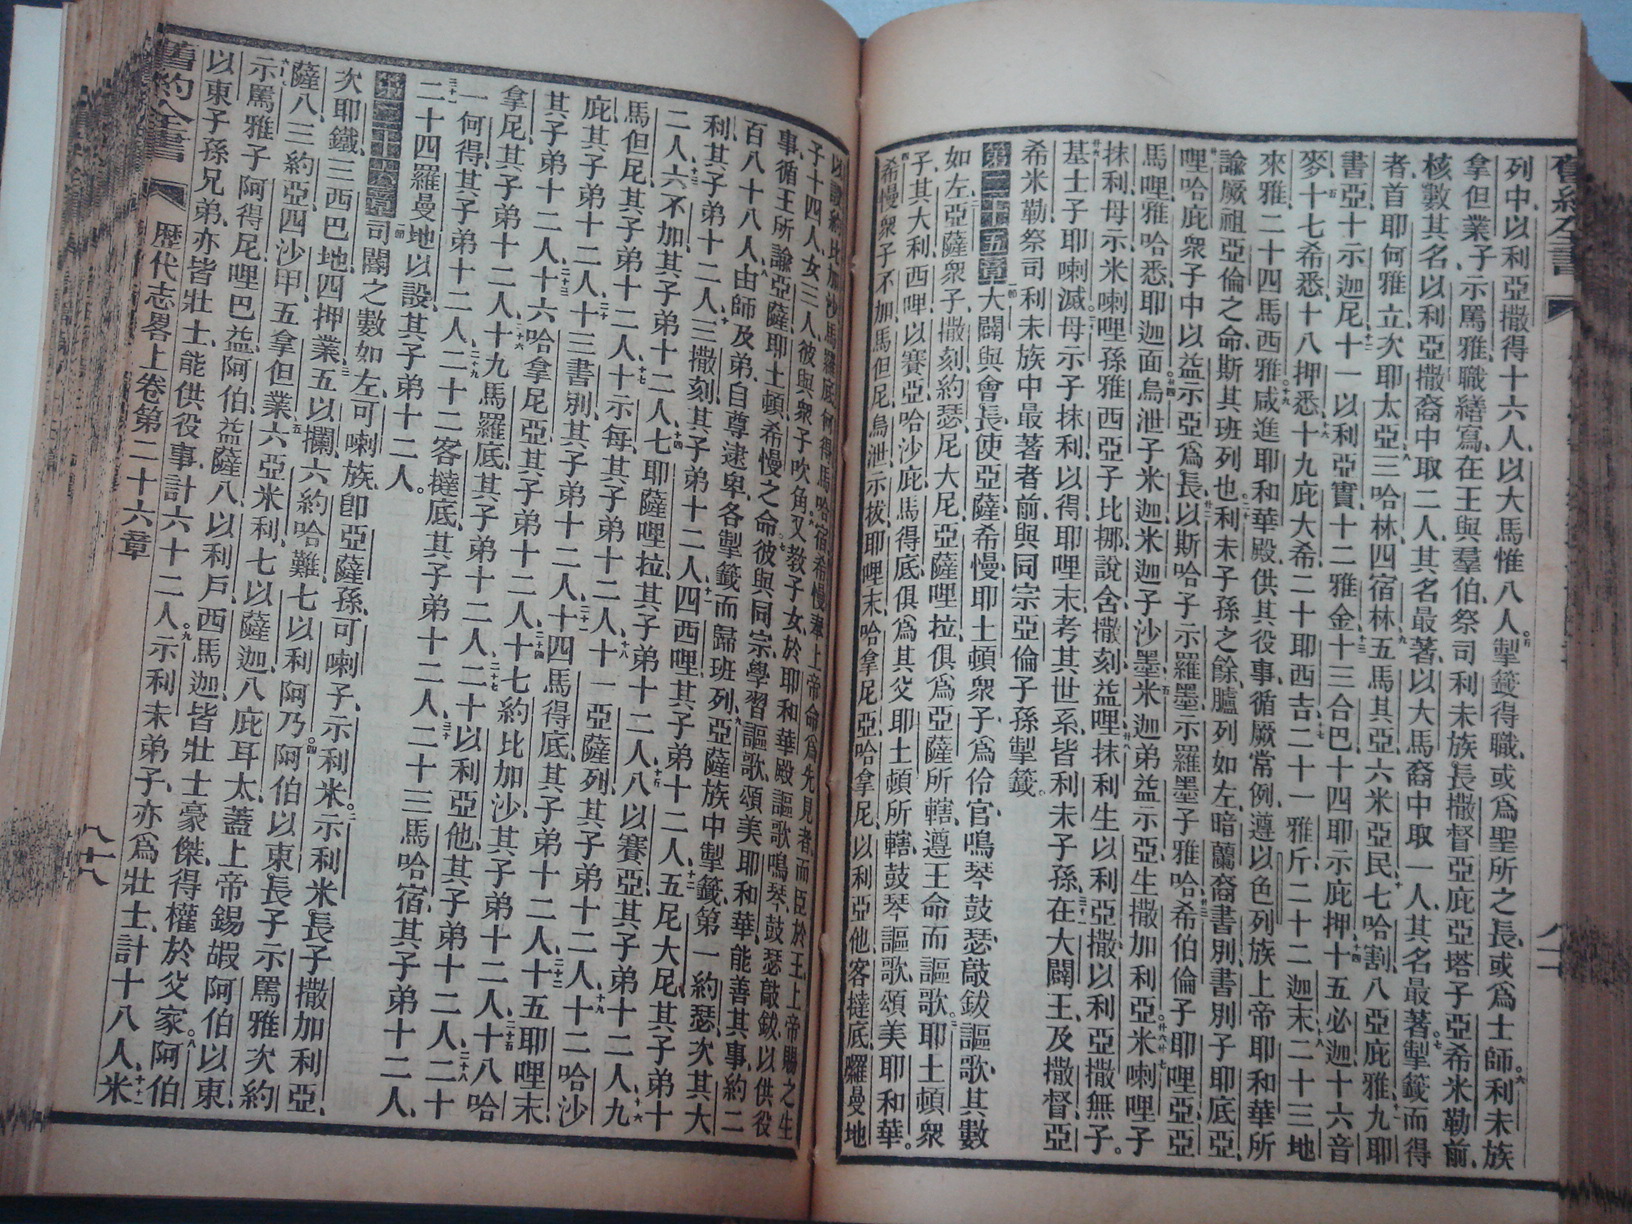 舊約全書
列中以利亞撒得十六人以大馬惟八人掣籤得職或爲聖所之長或爲士師利未族
拿但業子示罵雅職繕寫在王與羣伯祭司利未族長撒督亞庇亞塔子亞希米勒前
核數其名以利亞撒裔中取二人其名最著以大馬裔中取一人其名最著掣籤而得
者首耶何雅立次耶太亞三哈林四宿林五馬其亞六米亞民七哈割八亞庇雅九耶
書亞十示迦尼十一以利亞實十二雅金十三合巴十四耶示庇押十五必迦十六音
麥十七希悉十八押悉十九庇大希二十耶西吉二十一雅斤二十二迦末二十三地
來雅二十四馬西雅咸進耶和華殿供其役事循厥常例遵以色列族上帝耶和華所
諭厥祖亞倫之命斯其班列也利未子孫之餘臚列如左暗蘭裔書別書別子耶底亞
哩哈庇衆子中以益示亞爲長以斯哈子示羅墨示羅墨子雅哈希伯倫子耶哩亞亞
馬哩雅哈悉耶迦面烏泄子米迦米迦子沙墨米迦弟益示亞生撒加利亞米喇哩子
抹利母示米喇哩孫雅西亞子比挪說含撒刻益哩抹利生以利亞撒以利亞撒無子
基士子耶喇滅母示子抹利以得耶哩末考其世系皆利未子孫在大闢王及撒督亞
希米勒祭司利未族中最著者前與同宗亞倫子孫掣籤
第二十五章大闢與會長使亞薩希慢耶土頓衆子爲伶官鳴琴鼓瑟敲鈸謳歌其數
如左亞薩衆子撒刻約瑟尼大尼亞薩哩拉俱爲亞薩所轄遵王命而謳歌耶土頓衆
子其大利西哩以賽亞哈沙庇馬得底俱爲其父耶土頓所轄鼓琴謳歌頌美耶和華
希慢衆子不加馬但尼烏泄示拔耶哩末哈拿尼亞哈拿尼以利亞他客撻底羅曼地
以設約比加沙馬羅底何得馬哈宿希慢奉上帝命爲先見者而臣於王上帝賜之生
子十四人女三人彼與衆子吹角又教子女於耶和華殿謳歌鳴琴鼓瑟敲鈸以供役
事循王所諭亞薩耶土頓希慢之命彼與同宗學習謳歌頌美耶和華能善其事約二
百八十八人由師及弟自尊逮卑各掣籤而歸班列亞薩族中掣籤第一約瑟次其大
利其子弟十二人三撒刻其子弟十二人四西哩其子弟十二人五尼大尼其子弟十
二人六不加其子弟十二人七耶薩哩拉其子弟十二人八以賽亞其子弟十二人九
馬但尼其子弟十二人十示每其子弟十二人十一亞薩列其子弟十二人十二哈沙
庇其子弟十二人十三書別其子弟十二人十四馬得底其子弟十二人十五耶哩末
其子弟十二人十六哈拿尼亞其子弟十二人十七約比加沙其子弟十二人十八哈
拿尼其子弟十二人十九馬羅底其子弟十二人二十以利亞他其子弟十二人二十
一何得其子弟十二人二十二客撻底其子弟十二人二十三馬哈宿其子弟十二人
二十四羅曼地以設其子弟十二人
第二十六章司閽之數如左可喇族卽亞薩孫可喇子示利米示利米長子撒加利亞
次耶鐵三西巴地四押業五以攔六約哈難七以利阿乃阿伯以東長子示罵雅次約
薩八三約亞四沙甲五拿但業六亞米利七以薩迦八庇耳太蓋上帝錫嘏阿伯以東
示罵雅子阿得尼哩巴益阿伯益薩八以利戶西馬迦皆壯士豪傑得權於父家阿伯
以東子孫兄弟亦皆壯士能供役事計六十二人示利末弟子亦爲壯士計十八人米
舊約全書 歷代志畧上卷第二十六章 八十八